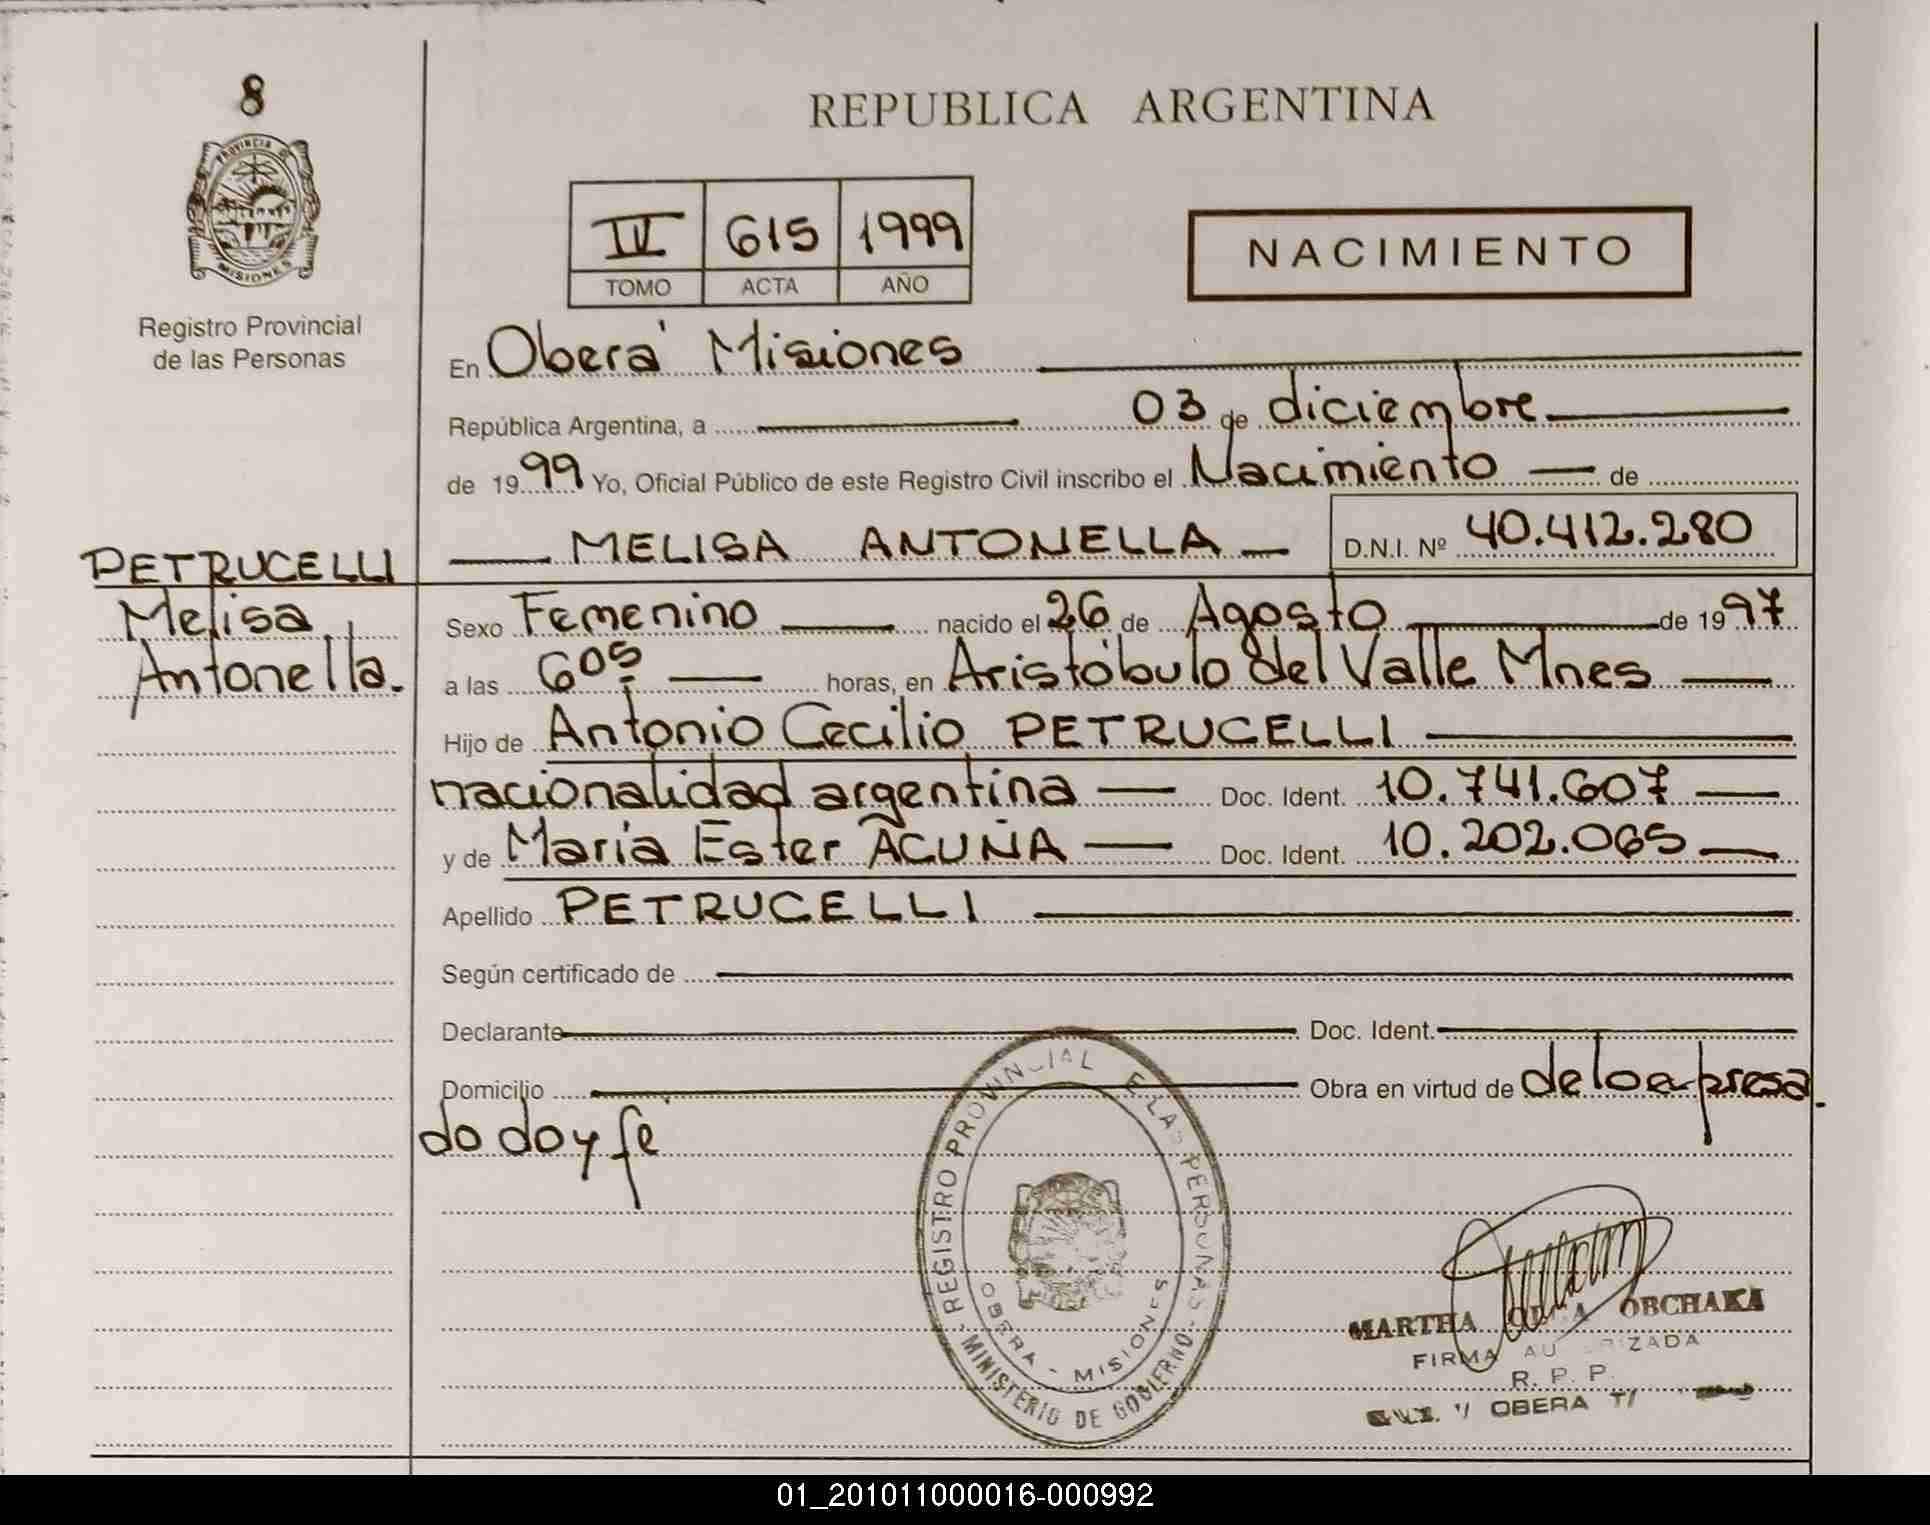 8
PROVINCIA DE
MISIONES
Registro Provincial
de las Personas
REPUBLICA ARGENTINA
IV 615 1999
TOMO ACTA AÑO
NACIMIENTO
En Oberá Misiones
República Argentina, a 03 de diciembre
de 1999 Yo, Oficial Público de este Registro Civil inscribo el Nacimiento de
MELISA ANTONELLA D.N.I. Nº 40.412.280
PETRUCELLI
Melisa
Antonella.
Sexo Femenino nacido el 26 de Agosto de 1997
a las 605 horas, en Aristóbulo del Valle Mnes
Hijo de Antonio Cecilio PETRUCELLI
nacionalidad argentina Doc. Ident. 10.741.607
y de María Ester ACUÑA Doc. Ident. 10.202.065
Apellido PETRUCELLI
Según certificado de
Declarante Doc. Ident.
Domicilio Obra en virtud de de lo expresa
do doy fe
REGISTRO PROVINCIAL DE LAS PERSONAS
MINISTERIO DE GOBIERNO
OBERA - MISIONES
MARTHA OBCHAKA
FIRMA AUTORIZADA
R. P. P.
OBERA
01_201011000016-000992